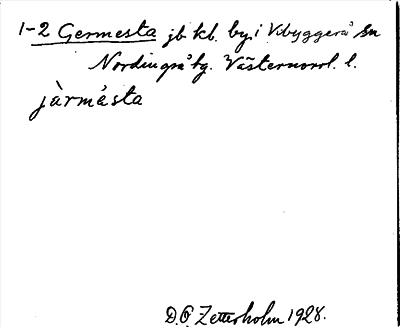 1-2 Germesta jb. kb. by i Vibyggerå sn
Nordingrå tg. Västernorrl. l.
jàrmésta
D.O. Zetterholm 1928.